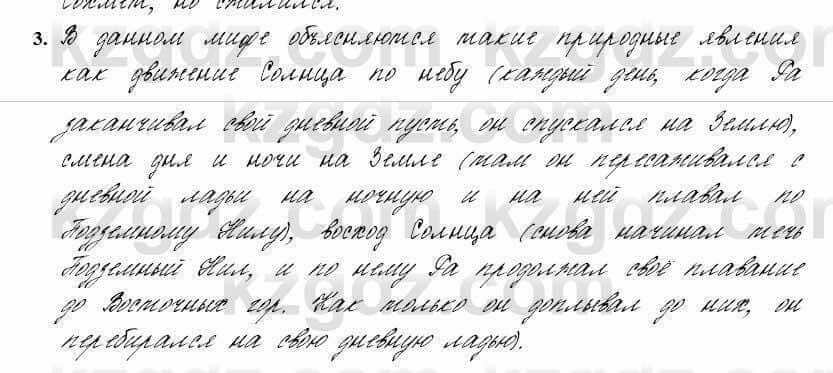 Сохмет, но сжалился.
3. В данном мифе объясняются такие природные явления
как движение Солнца по небу (каждый день, когда Ра
заканчивал свой дневной пусть, он спускался на Землю),
смена дня и ночи на Земле (там он пересаживался с
дневной ладьи на ночную и на ней плавал по
Подземному Нилу), восход Солнца (снова начинал течь
Подземный Нил, и по нему Ра продолжал своё плавание
до Восточных гор. Как только он доплывал до них, он
перебирался на свою дневную ладью).